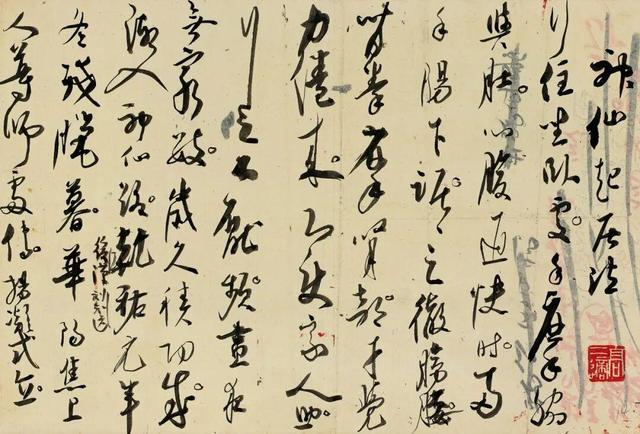 神仙起居法
行住坐臥處手摩脇
與肚心腹通快時兩
手腸下踞踞之徹膀腰
背拳摩腎部才覺
力倦來即使家人助
行之不厭頻晝夜
無窮數歲久積功成
漸入神仙路乾祐元年
冬殘臘暮華陽焦上
人尊師處傳楊凝式